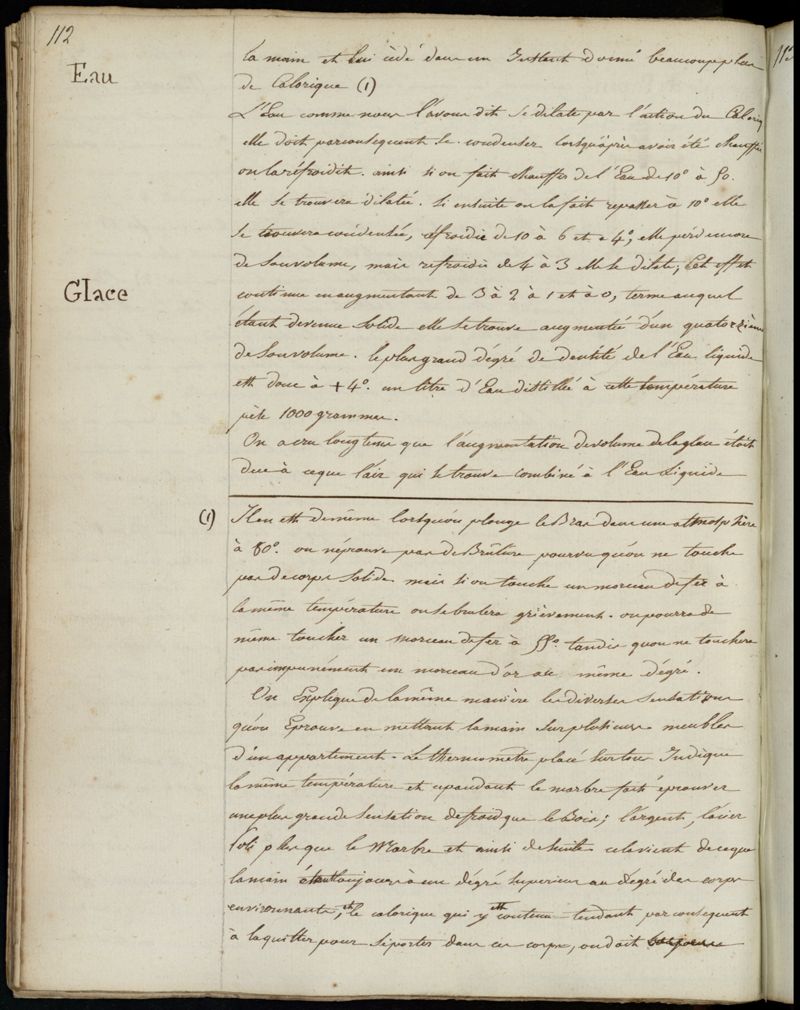 112
Eau
la main et lui cède dans un Instant donné beaucoup plus
de Calorique (1)
L'Eau comme nous l'avons dit se dilate par l'action du Caloriq
elle doit par consequent se condenser lorsqu'après avoir été chauffée
on la réfroidit. ainsi si on fait chauffer de l'Eau de 10° à 50.
elle se trouvera dilatée. si ensuite on la fait repasser à 10° elle
se trouvera condensée, réfroidie de 10 à 6 et a 4°, elle perd encore
de son volume, mais refroidie de 4 à 3 elle se dilate, Cet effet
Glace
continue en augmentant de 3 à 2 à 1 et à 0, terme auquel
étant devenue solide elle se trouve augmentée d'un quatorzième
de son volume. le plus grand dégré de densité de l'Eau liquide
est donc à +4°. un litre d'Eau distillée à cette température
pèse 1000 grammes.
On a cru longtems que l'augmentation de volume de la glace étoit
due à ce que l'air qui se trouve combiné à l'Eau Liquide
(1) Il en est de même lorsqu'on plonge le Bras dans une atmosphère
à 80°. on n'éprouve pas de Brûlure pourvu qu'on ne touche
pas de corps solide mais si on touche un morceau de fer à
la même température on se brulera grièvement. on pourra de
même toucher un morceau de fer à 55°. tandis qu'on ne touchera
pas impunément un morceau d'or au même dégré.
On Explique de la même manière les diverses sensations
qu'on Eprouve en mettant la main sur plusieurs meubles
d'un appartement. Le thermomètre placé sur tous Indique
la même température et cependant le marbre fait éprouver
une plus grande sensation de froid que le Bois; l'argent, l'acier
Poli plus que le Marbre et ainsi de suite cela vient de ce que
la main étant toujours à un dégré superieur au dégré des corps
environnants, et le calorique qui y est contenu tendant par consequent
à la quitter pour se porter dans ces corps, on doit